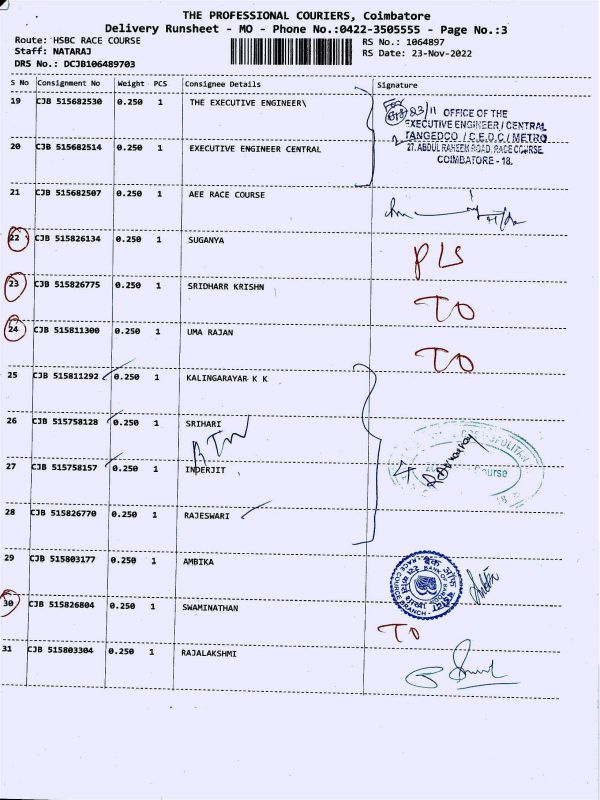 THE PROFESSIONAL COURIERS, Coimbatore
Delivery Runsheet - MO - Phone No.:0422-3505555 - Page No.:3
Route: HSBC RACE COURSE
Staff: NATARAJ
DRS No.: DCJB106489703
RS No.: 1064897
RS Date: 23-Nov-2022
S No Consignment No Weight PCS Consignee Details Signature
19 CJB 515682530 0.250 1 THE EXECUTIVE ENGINEER\
23/11 OFFICE OF THE
EXECUTIVE ENGINEER / CENTRAL
TANGEDCO / C.E.D.C / METRO
27, ABDUL RAHEEM ROAD, RACE COURSE
COIMBATORE - 18.
20 CJB 515682514 0.250 1 EXECUTIVE ENGINEER CENTRAL
21 CJB 515682507 0.250 1 AEE RACE COURSE
22 CJB 515826134 0.250 1 SUGANYA PLS
23 CJB 515826775 0.250 1 SRIDHARR KRISHN TO
24 CJB 515811300 0.250 1 UMA RAJAN TO
25 CJB 515811292 0.250 1 KALINGARAYAR K K
26 CJB 515758128 0.250 1 SRIHARI
27 CJB 515758157 0.250 1 INDERJIT
28 CJB 515826770 0.250 1 RAJESWARI
29 CJB 515803177 0.250 1 AMBIKA
30 CJB 515826804 0.250 1 SWAMINATHAN TO
31 CJB 515803304 0.250 1 RAJALAKSHMI